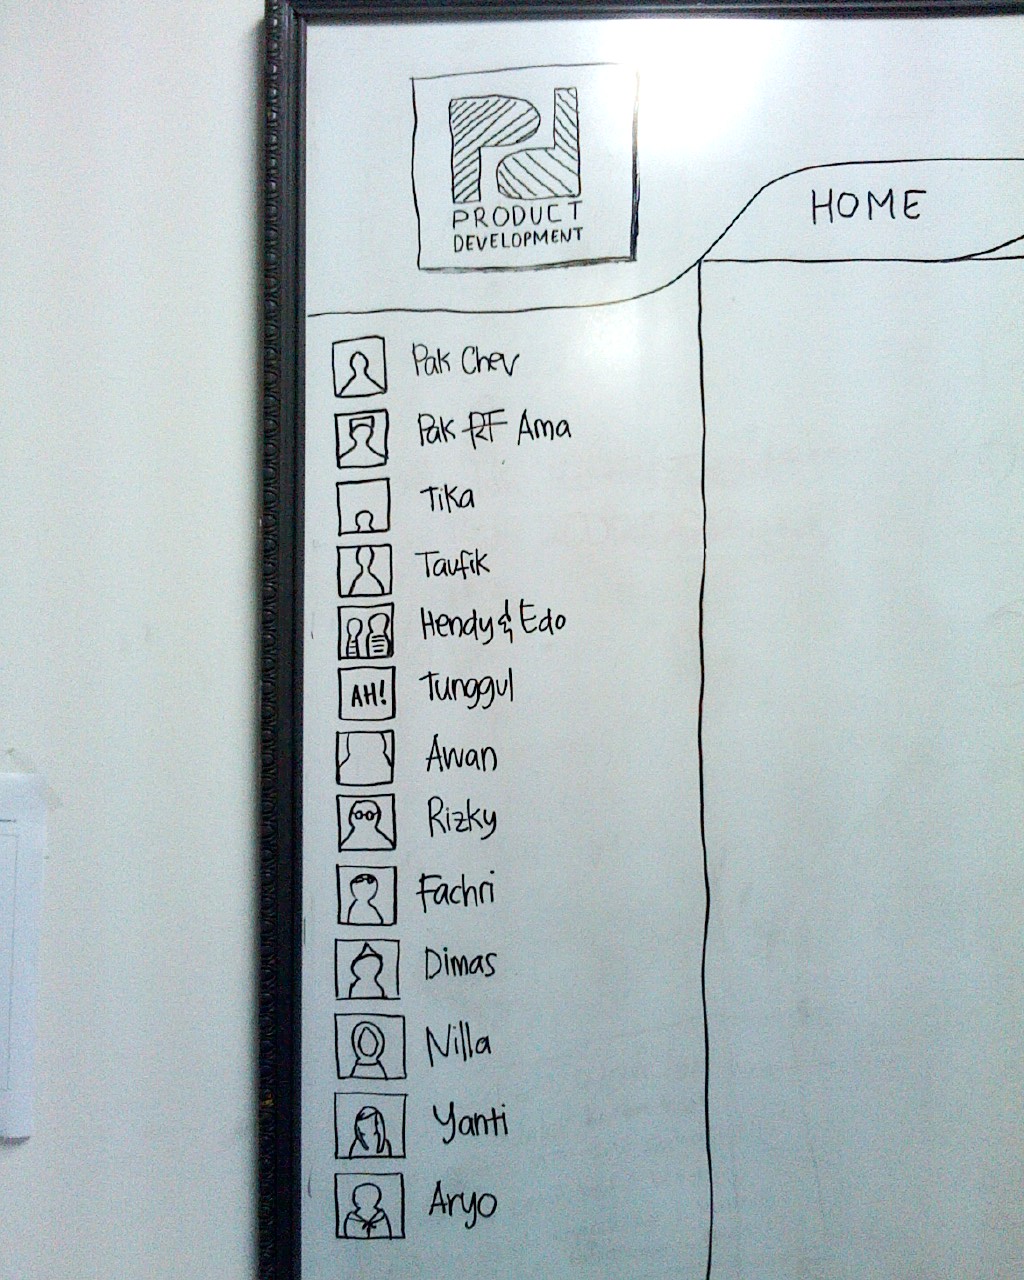 Pd
PRODUCT
DEVELOPMENT
HOME
Pak Chev
Pak RF Ama
Tika
Taufik
Hendy & Edo
AH! Tunggul
Awan
Rizky
Fachri
Dimas
Nilla
Yanti
Aryo